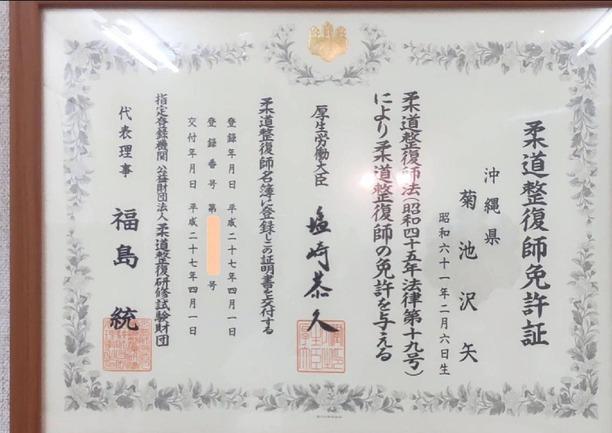 柔道整復師免許証
沖縄県
菊池沢矢
昭和六十一年二月六日生
柔道整復師法(昭和四十五年法律第十九号)
により柔道整復師の免許を与える
厚生労働大臣 塩崎恭久
柔道整復師名簿に登録しこの証明書を交付する
登録年月日 平成二十七年四月一日
登録番号 第 号
交付年月日 平成二十七年四月一日
指定登録機関 公益財団法人柔道整復研修試験財団
代表理事 福島統